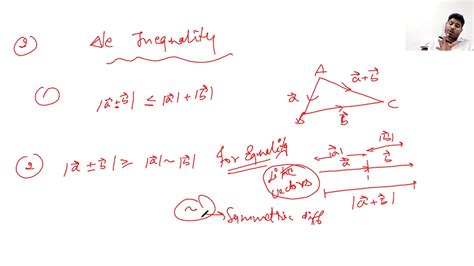 2) Δle Inequality
① |a⃗ ± b⃗| ≤ |a⃗| + |b⃗|
A
a⃗
a⃗ + b⃗
B
b⃗
C
② |a⃗ ± b⃗| ≥ |a⃗| ~ |b⃗|
For Equality
like vectors
|a⃗|
|b⃗|
a⃗
b⃗
|a⃗ + b⃗|
~ → Symmetric diff